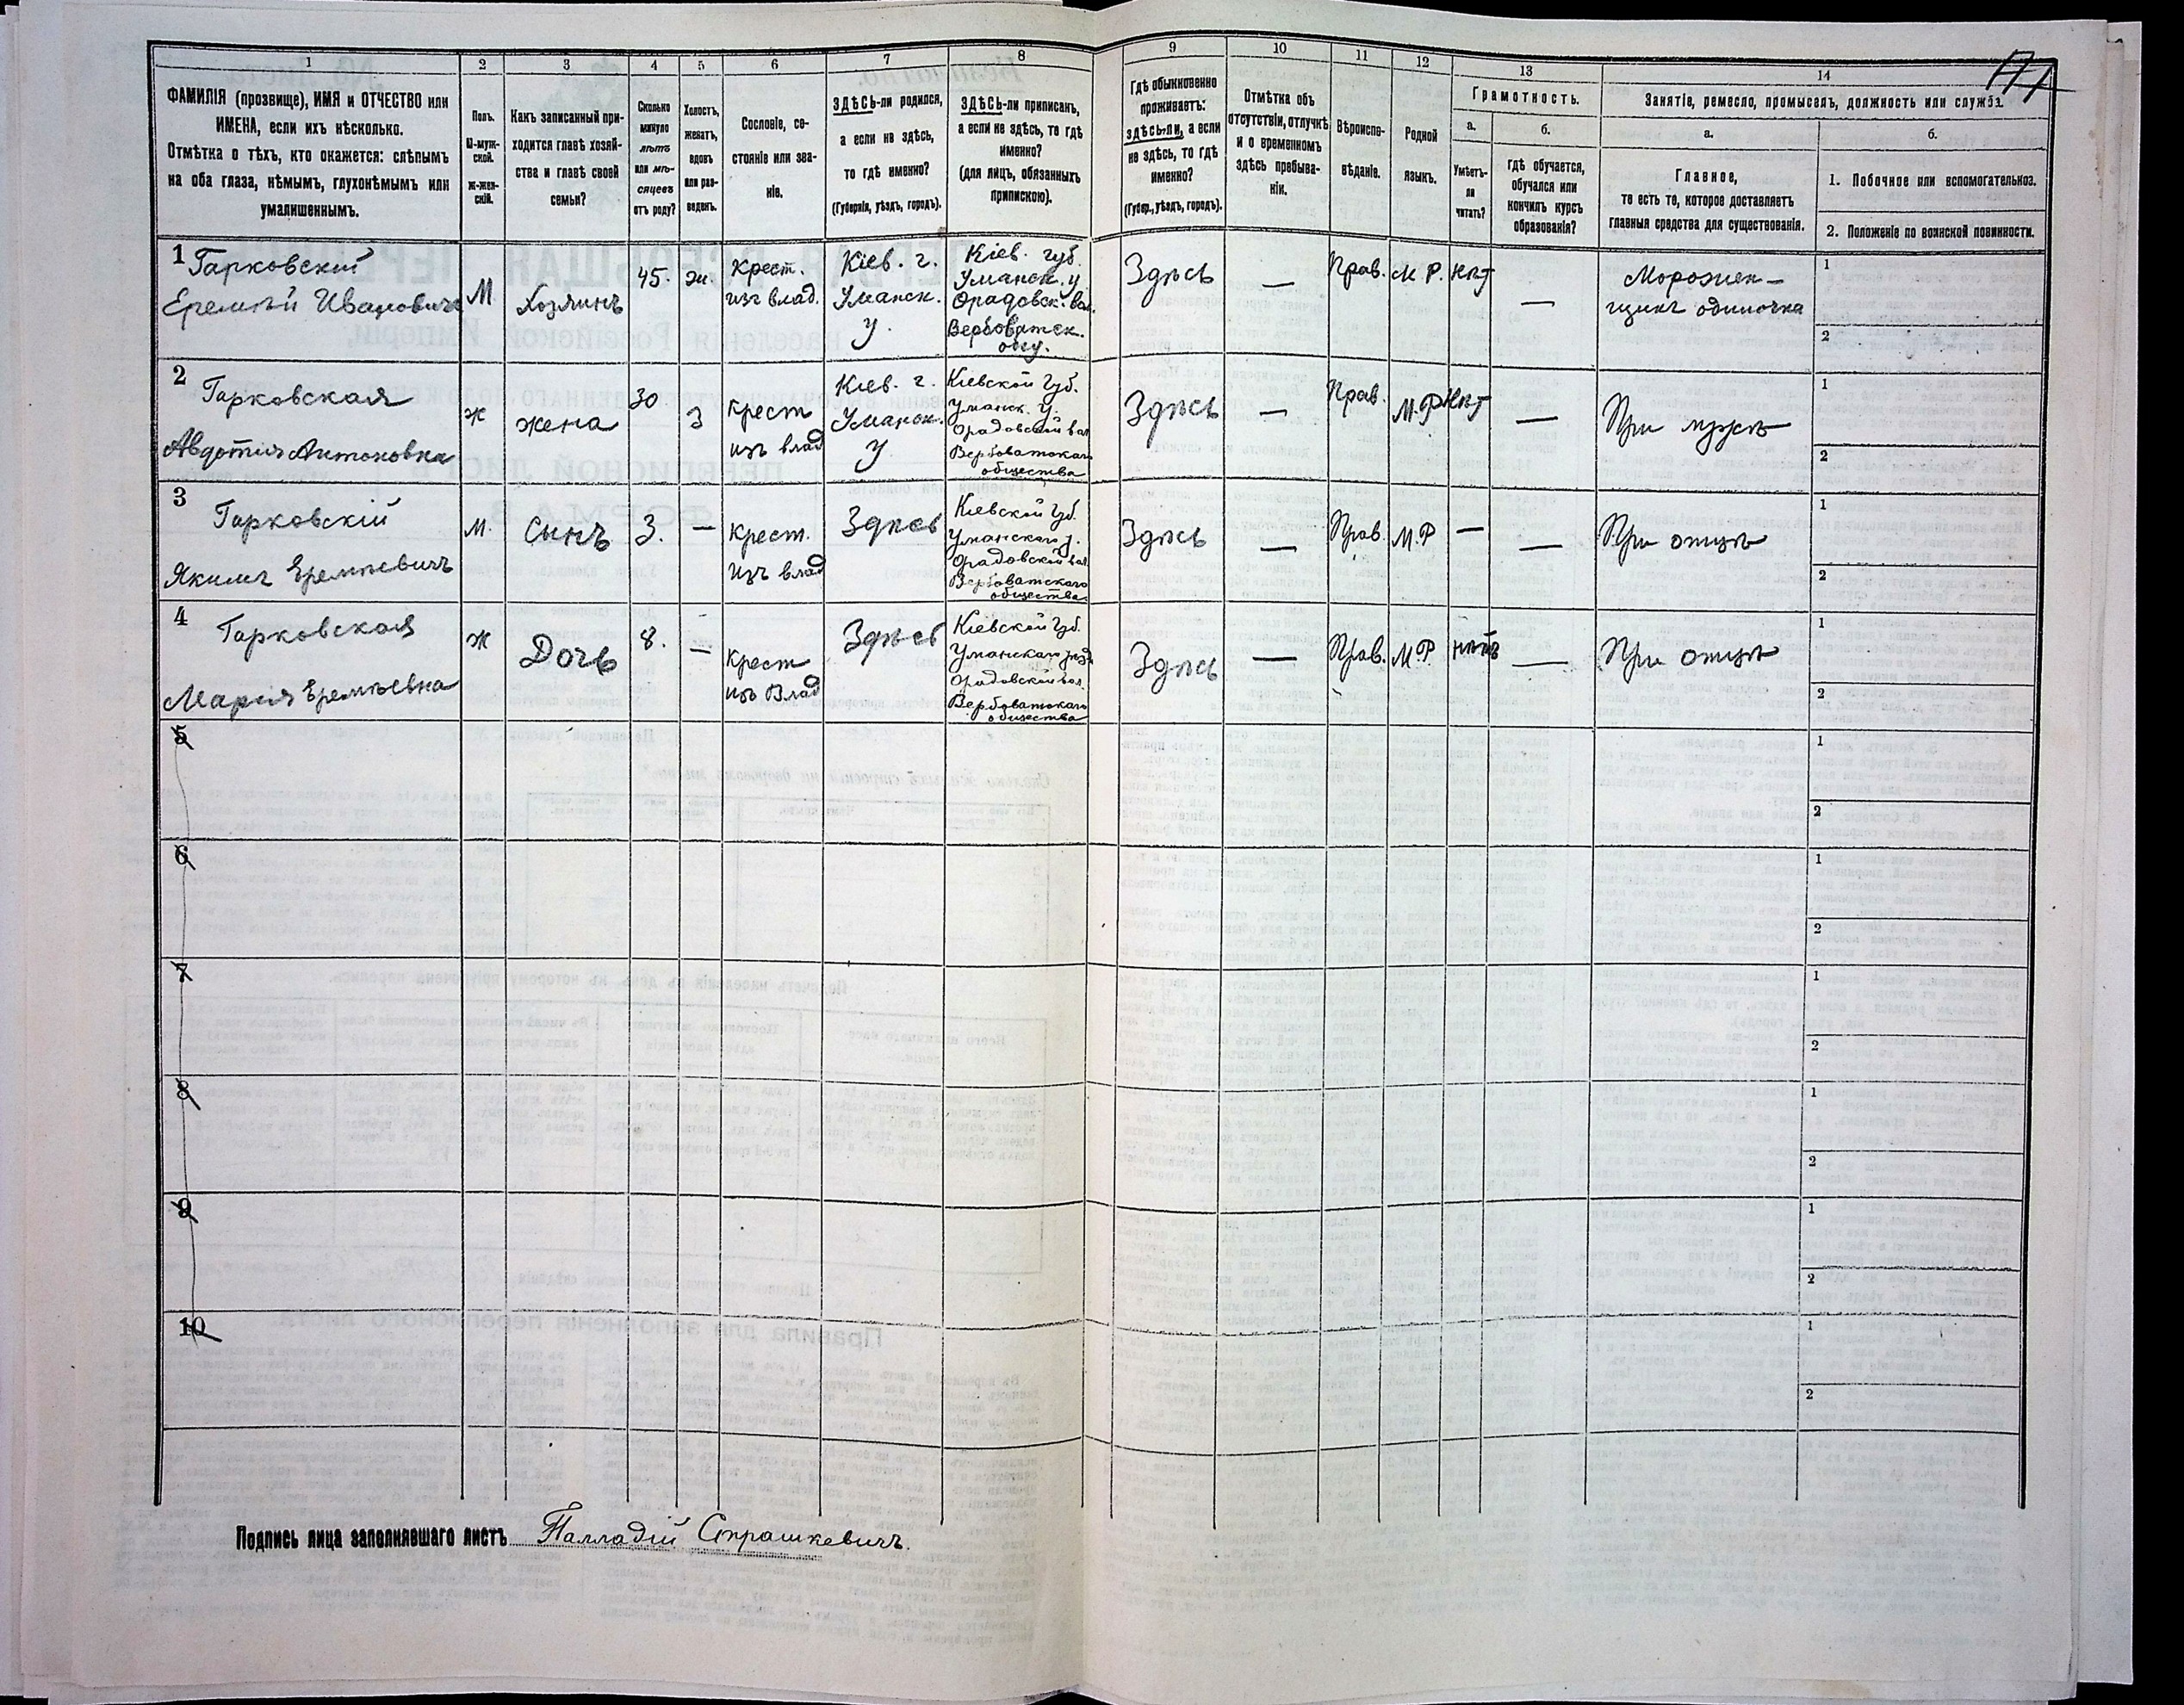 171
1 2 3 4 5 6 7 8 9 10 11 12 13 14
ФАМИЛІЯ (прозвище), ИМЯ и ОТЧЕСТВО или
ИМЕНА, если ихъ нѣсколько.
Отмѣтка о тѣхъ, кто окажется: слѣпымъ
на оба глаза, нѣмымъ, глухонѣмымъ или
умалишеннымъ.
Полъ.
М-муж-
ской.
Ж-жен-
скій.
Какъ записанный при-
ходится главѣ хозяй-
ства и главѣ своей
семьи?
Сколько
минуло
лѣтъ
или мѣ-
сяцевъ
отъ роду?
Холостъ,
женатъ,
вдовъ
или раз-
веденъ.
Сословіе, со-
стояніе или зва-
ніе.
ЗДѢСЬ-ли родился,
а если не здѣсь,
то гдѣ именно?
(Губернія, уѣздъ, городъ).
ЗДѢСЬ-ли приписанъ,
а если не здѣсь, то гдѣ
именно?
(для лицъ, обязанныхъ
припискою).
Гдѣ обыкновенно
проживаетъ:
здѣсь-ли, а если
не здѣсь, то гдѣ
именно?
(Губер., уѣздъ, городъ).
Отмѣтка объ
отсутствіи, отлучкѣ
и о временномъ
здѣсь пребыва-
ніи.
Вѣроиспо-
вѣданіе.
Родной
языкъ.
Грамотность.
а.
Умѣетъ-
ли
читать?
б.
гдѣ обучается,
обучался или
кончилъ курсъ
образованія?
Занятіе, ремесло, промыселъ, должность или служба.
а.
Главное,
то есть то, которое доставляетъ
главныя средства для существованія.
б.
1. Побочное или вспомогательное.
2. Положеніе по воинской повинности.
1 Гарковскій
Еремѣй Ивановичъ
М
Хозяинъ
45.
ж.
Крест.
изъ влад.
Кіев. г.
Уманск.
у.
Кіев. губ.
Уманск. у.
Орадовск. вол.
Вербоватск.
общ.
Здѣсь
—
Прав.
М. Р.
нѣт
—
Морожен-
щикъ одиночка
1
2
2 Гарковская
Авдотія Антоновна
ж
жена
30
З
Крест
изъ влад
Кіев. г.
Уманск.
у
Кіевской губ.
Уманск. у.
Орадовской вол
Вербоватскаго
общества
Здѣсь
—
Прав.
М.Р
нѣт
—
При мужѣ
1
2
3 Гарковскій
Якимъ Еремѣевичъ
м.
Сынъ
3.
—
Крест.
изъ влад
Здѣсь
Кіевской губ.
Уманскаго у.
Орадовской вол
Вербоватскаго
общества
Здѣсь
—
Прав.
М.Р
—
—
При отцѣ
1
2
4 Гарковская
Марія Еремѣевна
ж
Дочь
8.
—
Крест
изъ Влад
Здѣсь
Кіевской губ.
Уманскаго уѣзд
Орадовской вол.
Вербоватскаго
общества
Здѣсь
—
Прав.
М.Р.
нѣтъ
—
При отцѣ
1
2
5
1
2
6
1
2
7
1
2
8
1
2
9
1
2
10
1
2
Подпись лица заполнявшаго листъ Палладій Страшкевичъ.